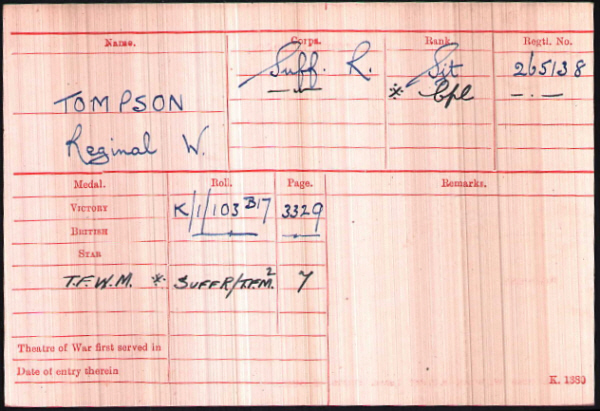 Name. Corps. Rank. Regtl. No.
Suff. R. Sjt 265138
* Cpl —.—
TOMPSON
Reginal W.
Medal. Roll. Page. Remarks.
VICTORY K/1/103 B17 3329
BRITISH
STAR
T.F.W.M. * SUFF R/T.F.M.2 7
Theatre of War first served in
Date of entry therein
K. 1380